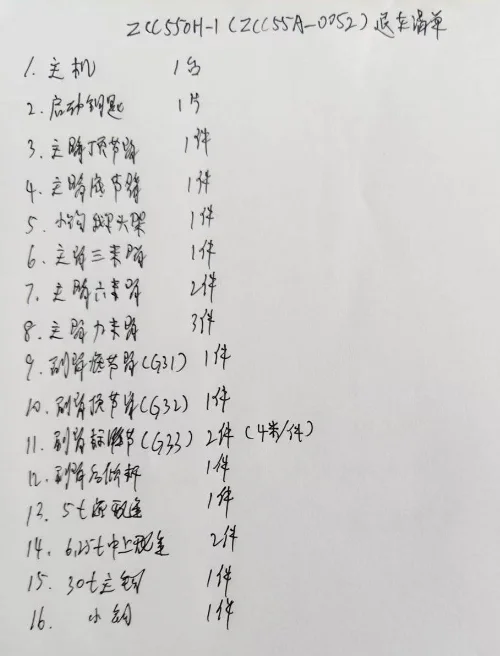 ZCC550H-1(ZCC55A-0052)退车清单
1. 主机 1台
2. 启动钥匙 1片
3. 主臂顶节臂 1件
4. 主臂底节臂 1件
5. 小钩 头架 1件
6. 主臂三米臂 1件
7. 主臂六米臂 2件
8. 主臂九米臂 3件
9. 副臂底节臂(G31) 1件
10. 副臂顶节臂(G32) 1件
11. 副臂标准节(G33) 2件(4米/件)
12. 副臂后倾杆 1件
13. 5t 配重 1件
14. 6.25t中上配重 2件
15. 30t主钩 1件
16. 小钩 1件